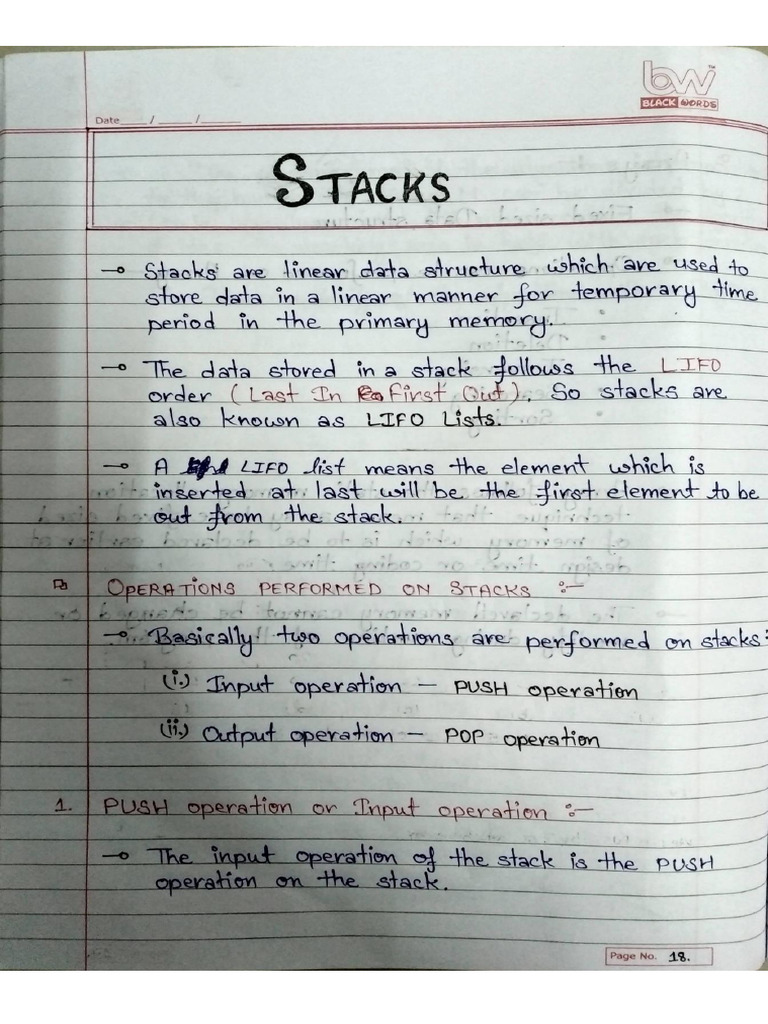 bw™
BLACK WORDS
Date___/___/___
STACKS
Stacks are linear data structure which are used to
store data in a linear manner for temporary time
period in the primary memory.
The data stored in a stack follows the LIFO
order (Last In First Out). So stacks are
also known as LIFO Lists.
A LIFO list means the element which is
inserted at last will be the first element to be
out from the stack.
OPERATIONS PERFORMED ON STACKS :-
Basically two operations are performed on stacks:
(i.) Input operation — PUSH operation
(ii.) Output operation — POP operation
1. PUSH operation or Input operation :-
The input operation of the stack is the PUSH
operation on the stack.
Page No. 18.